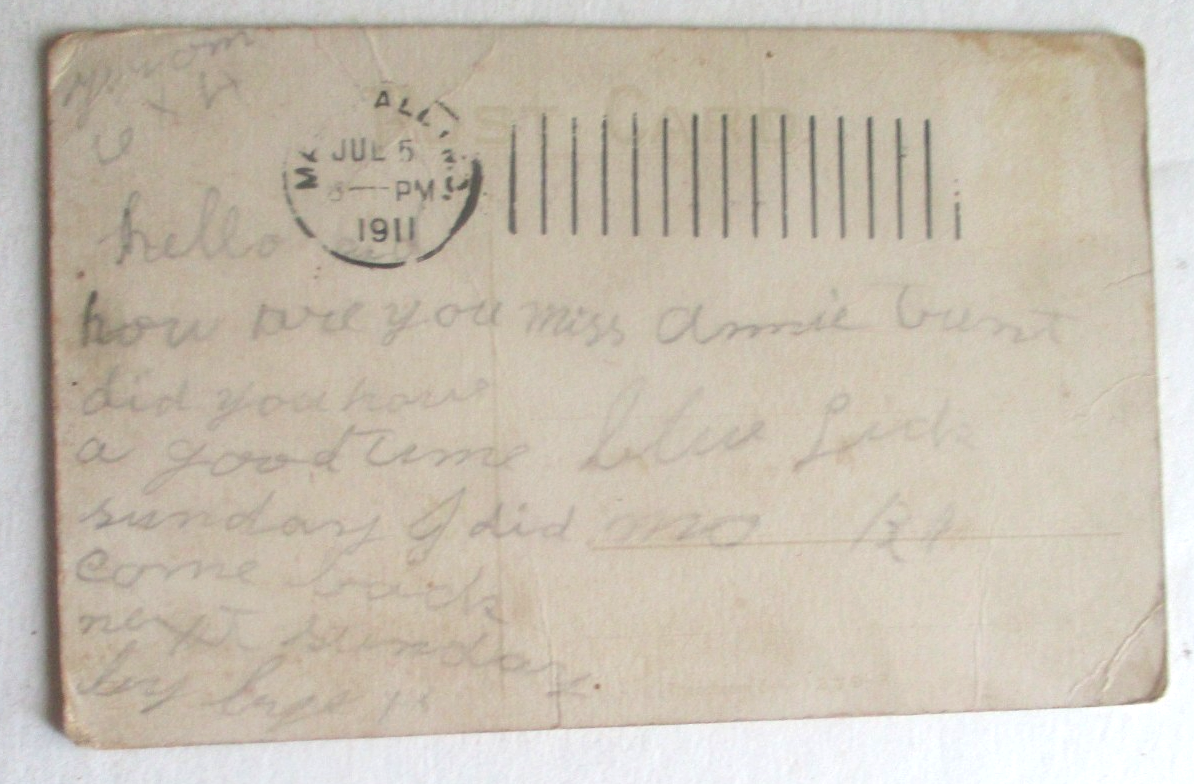 POST CARD
JUL 5
PM
1911
from
hello
how are you
did you have
a good time
sunday I did
come back
next sunday
by bye
miss annie
blue Lick
mo